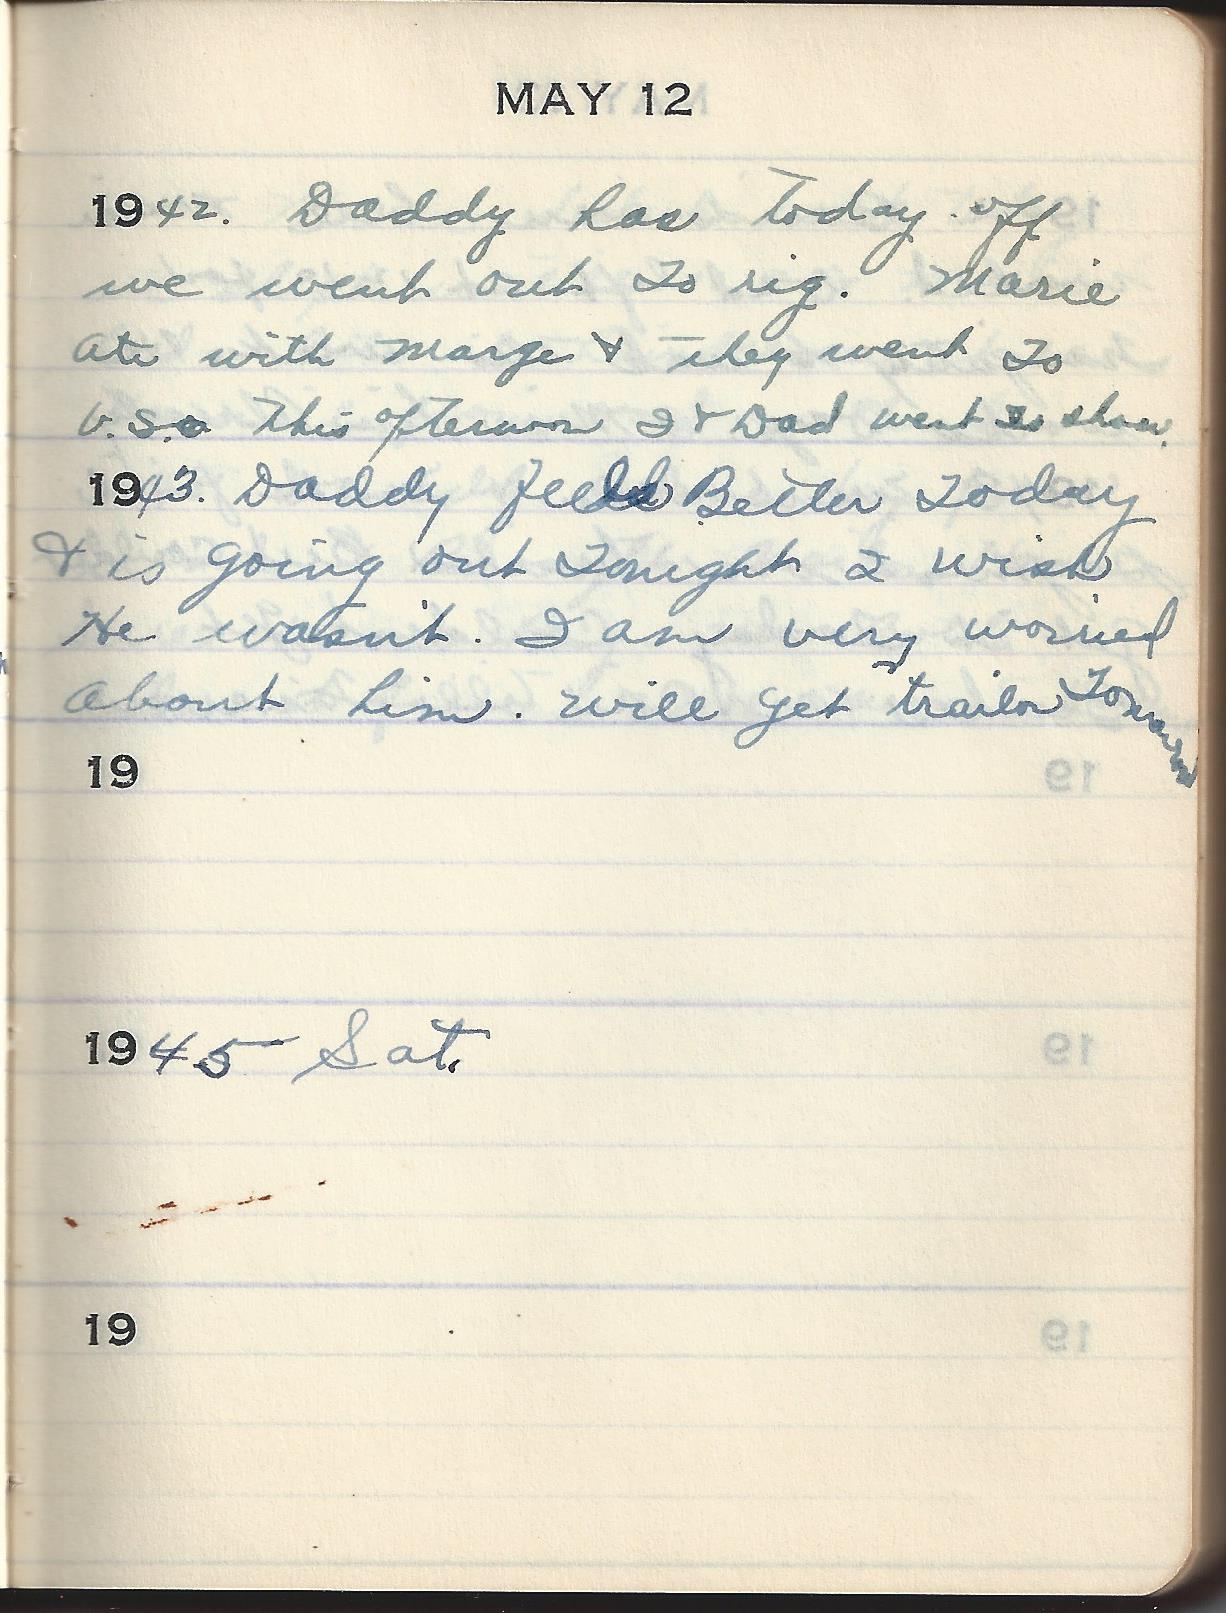 MAY 12
1942. Daddy has today off
we went out to rig. Marie
ate with Marge & They went to
U.S.O This afternoon I & Dad went to show.
1943. Daddy feels Better today
& is going out tonight I wish
He wasn't. I am very worried
about him. will get trailor Tomorrow
19
1945 Sat.
19